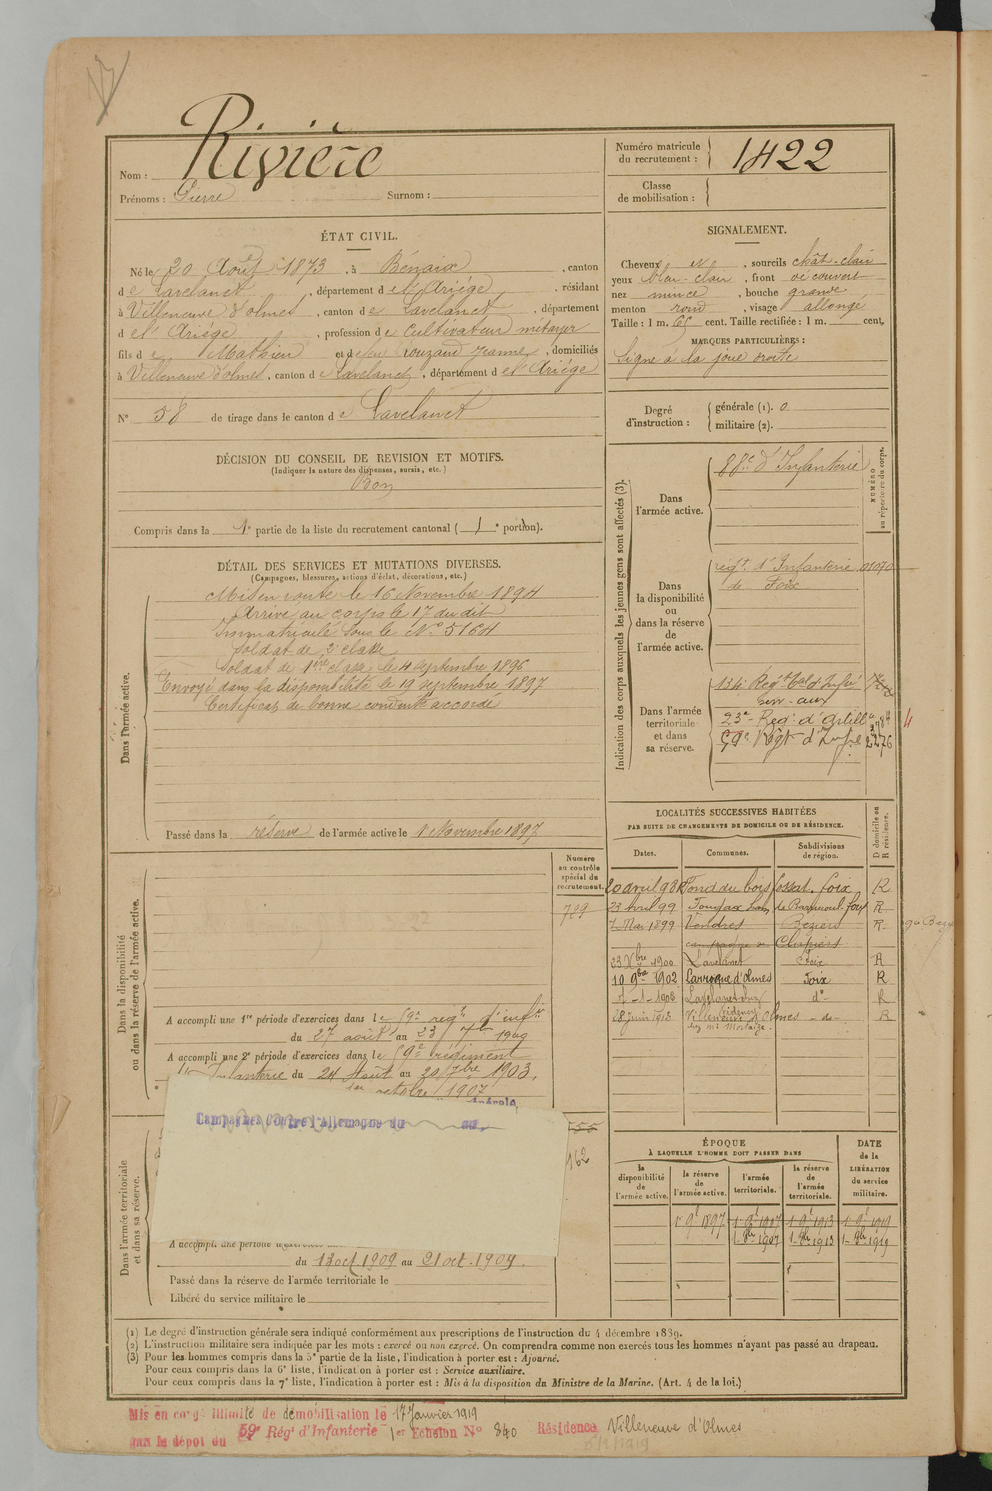 Nom : Rivière
Prénoms : Pierre Surnom :
Numéro matricule du recrutement : 1422
Classe de mobilisation :
ÉTAT CIVIL.
Né le 20 Août 1873, à Bénaix, canton
de Lavelanet, département de l'Ariège, résidant
à Villeneuve d'olmes, canton de Lavelanet, département
de l'Ariège, profession de Cultivateur métayer
fils de Mathieu et de feu Rouzaud Jeanne, domiciliés
à Villeneuve d'olmes, canton de Lavelanet, département de l'Ariège
N° 58 de tirage dans le canton de Lavelanet
SIGNALEMENT.
Cheveux sourcils chât-clair
yeux bleu-clair, front découvert
nez mince, bouche grande
menton rond, visage allongé
Taille : 1 m. 65 cent. Taille rectifiée : 1 m. cent.
MARQUES PARTICULIÈRES :
Signe à la joue droite
Degré d'instruction : générale (1). 0
militaire (2).
DÉCISION DU CONSEIL DE REVISION ET MOTIFS.
(Indiquer la nature des dispenses, sursis, etc.)
Bon
Compris dans la 1e partie de la liste du recrutement cantonal ( 1 e portion).
DÉTAIL DES SERVICES ET MUTATIONS DIVERSES.
(Campagnes, blessures, actions d'éclat, décorations, etc.)
Dans l'armée active.
Mis en route le 16 Novembre 1894
Arrivé au corps le 17 du dit
Immatriculé sous le N° 5164
Soldat de 2e classe
Soldat de 1ère classe le 4 septembre 1896
Envoyé dans la disponibilité le 19 septembre 1897
Certificat de bonne conduite accordé
Passé dans la réserve de l'armée active le 1 Novembre 1897
Indication des corps auxquels les jeunes gens sont affectés (3).
NUMÉRO au répertoire du corps.
Dans l'armée active.
88e d'Infanterie
Dans la disponibilité ou dans la réserve de l'armée active.
régt. d'Infanterie
de Foix
Dans l'armée territoriale et dans sa réserve.
134e Régt tal d'Infie
Serv. aux
23e Reg. d'Artill
59e Régt d'Infie
LOCALITÉS SUCCESSIVES HABITÉES
PAR SUITE DE CHANGEMENTS DE DOMICILE OU DE RÉSIDENCE.
Dates. Communes. Subdivisions de région. D domicile ou R résidence.
20 avril 98 R
23 Avril 99 foix R
7 Mai 1899 Vendres Béziers R
23 Xbre 1900 Lavelanet Foix R
10 9bre 1902 Larroque d'olmes Foix R
1-1-1908 Lavelanet do R
28 juin 1913 Villeneuve d'Olmes -do- R
Dans la disponibilité ou dans la réserve de l'armée active.
Numéro au contrôle spécial du recrutement.
789
A accompli une 1re période d'exercices dans le 59e régt d'infie
du 27 août au 23 7bre
A accompli une 2e période d'exercices dans le 59e régiment
d'Infanterie du 24 Août au 20 7bre 1903.
1er octobre 1907
Dans l'armée territoriale et dans sa réserve.
Campagnes Contre l'Allemagne du au
162
A accompli une période d'exercices
du 13 oct. 1909 au 21 oct. 1909.
Passé dans la réserve de l'armée territoriale le
Libéré du service militaire le
ÉPOQUE
À LAQUELLE L'HOMME DOIT PASSER DANS
DATE de la LIBÉRATION du service militaire.
la disponibilité de l'armée active. la réserve de l'armée active. l'armée territoriale. la réserve de l'armée territoriale.
1 9e 1897 1 9e 1907 1 9e 1913 1 9e 1919
1-8bre 1907 1-8bre 1913 1-8bre 1919
(1) Le degré d'instruction générale sera indiqué conformément aux prescriptions de l'instruction du 4 décembre 1889.
(2) L'instruction militaire sera indiquée par les mots : exercé ou non exercé. On comprendra comme non exercés tous les hommes n'ayant pas passé au drapeau.
(3) Pour les hommes compris dans la 5e partie de la liste, l'indication à porter est : Ajourné.
Pour ceux compris dans la 6e liste, l'indication à porter est : Service auxiliaire.
Pour ceux compris dans la 7e liste, l'indication à porter est : Mis à la disposition du Ministre de la Marine. (Art. 4 de la loi.)
Mis en congé illimité de démobilisation le 17 Janvier 1919
par le dépôt du 59e Régt d'Infanterie 1er Echelon N° 840 Résidence Villeneuve d'Olmes